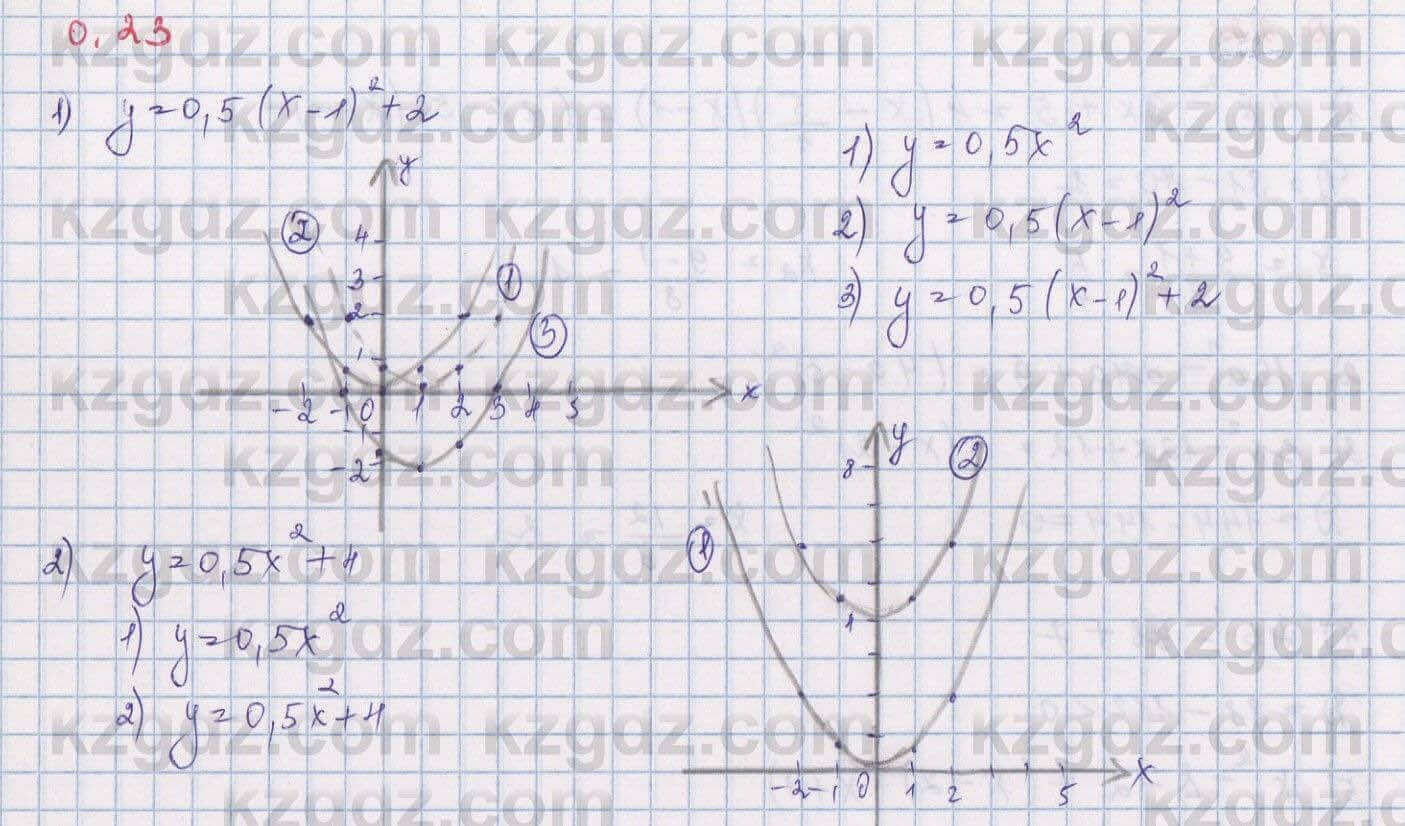 0.23
1) y=0,5(x-1)²+2
1) y=0,5x²
2) y=0,5(x-1)²
3) y=0,5(x-1)²+2
y
4
3
2
1
-2 -1 0 1 2 3 4 5 x
-1
-2
2 1 3
2) y=0,5x²+4
1) y=0,5x²
2) y=0,5x²+4
y
8
2
1
4
-2 -1 0 1 2 5 x
kzgdz.com